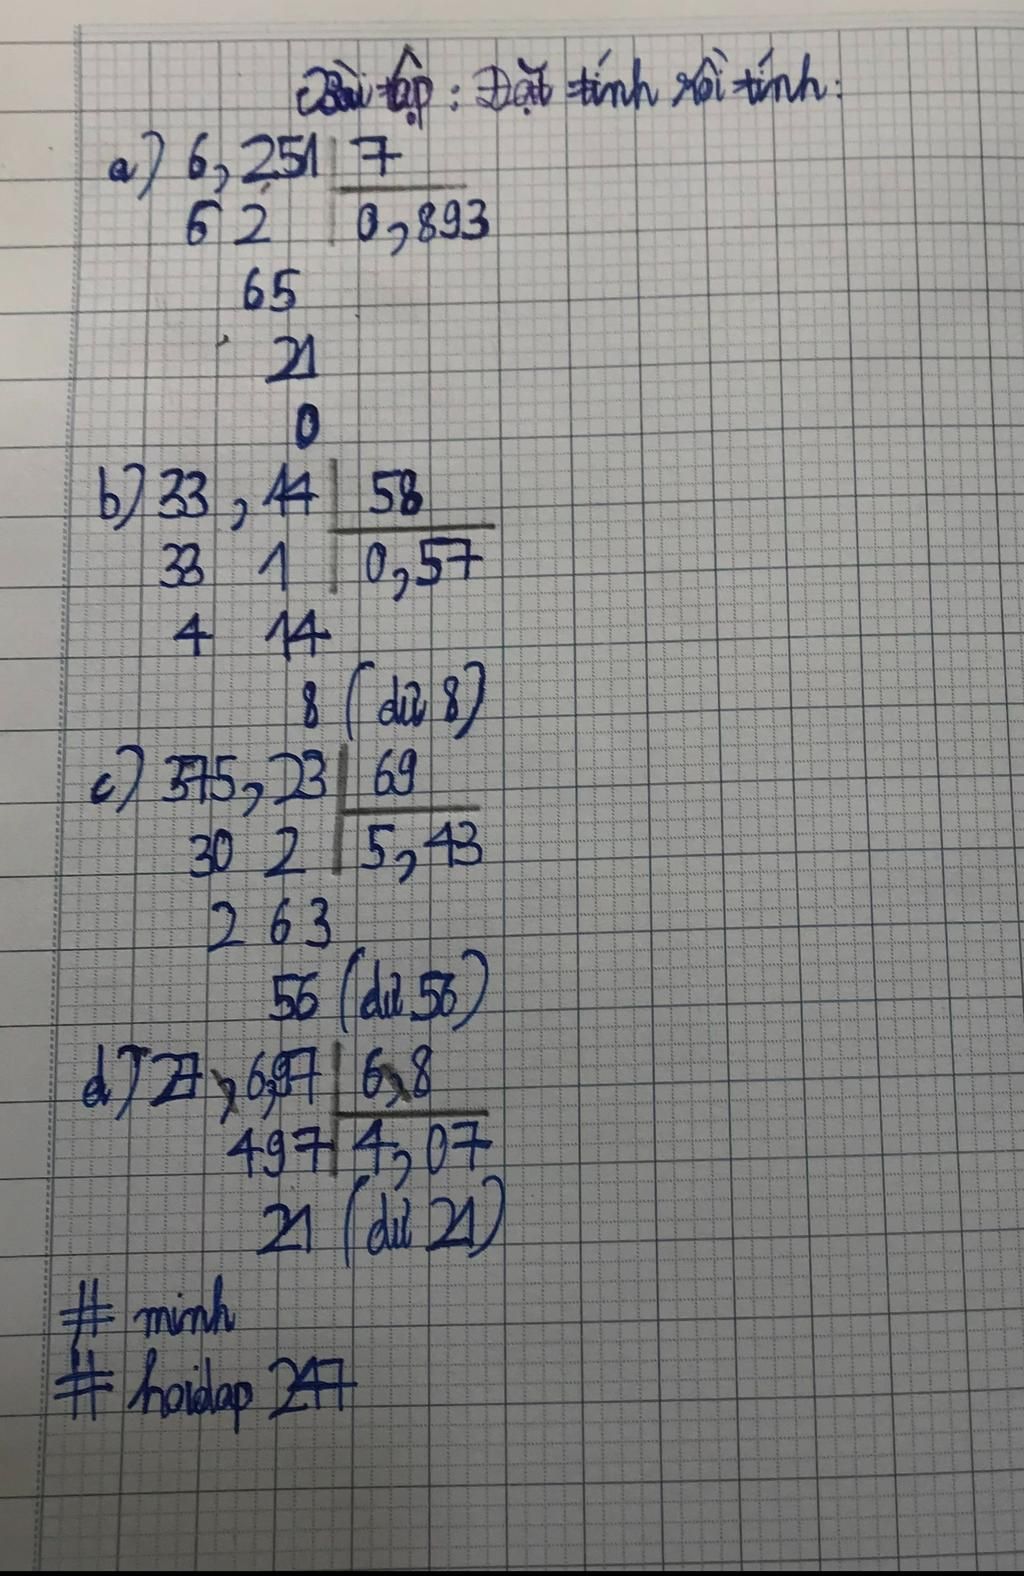 Bài tập : Đặt tính rồi tính :
a) 6,251 7
6 2 0,893
65
21
0
b) 33,14 58
33 1 0,57
4 14
8 (dư 8)
c) 375,23 69
30 2 5,43
2 63
56 (dư 56)
d) 27,6,97 6,8
497 4,07
21 (dư 21)
# minh
# hoidap 247